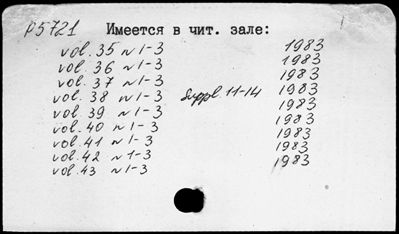 p5721 Имеется в чит. зале:
vol. 35 N 1-3 1983
vol. 36 N 1-3 1983
vol. 37 N 1-3 1983
vol. 38 N 1-3 Suppl. 11-14 1983
vol. 39 N 1-3 1983
vol. 40 N 1-3 1983
vol. 41 N 1-3 1983
vol. 42 N 1-3 1983
vol. 43 N 1-3 1983